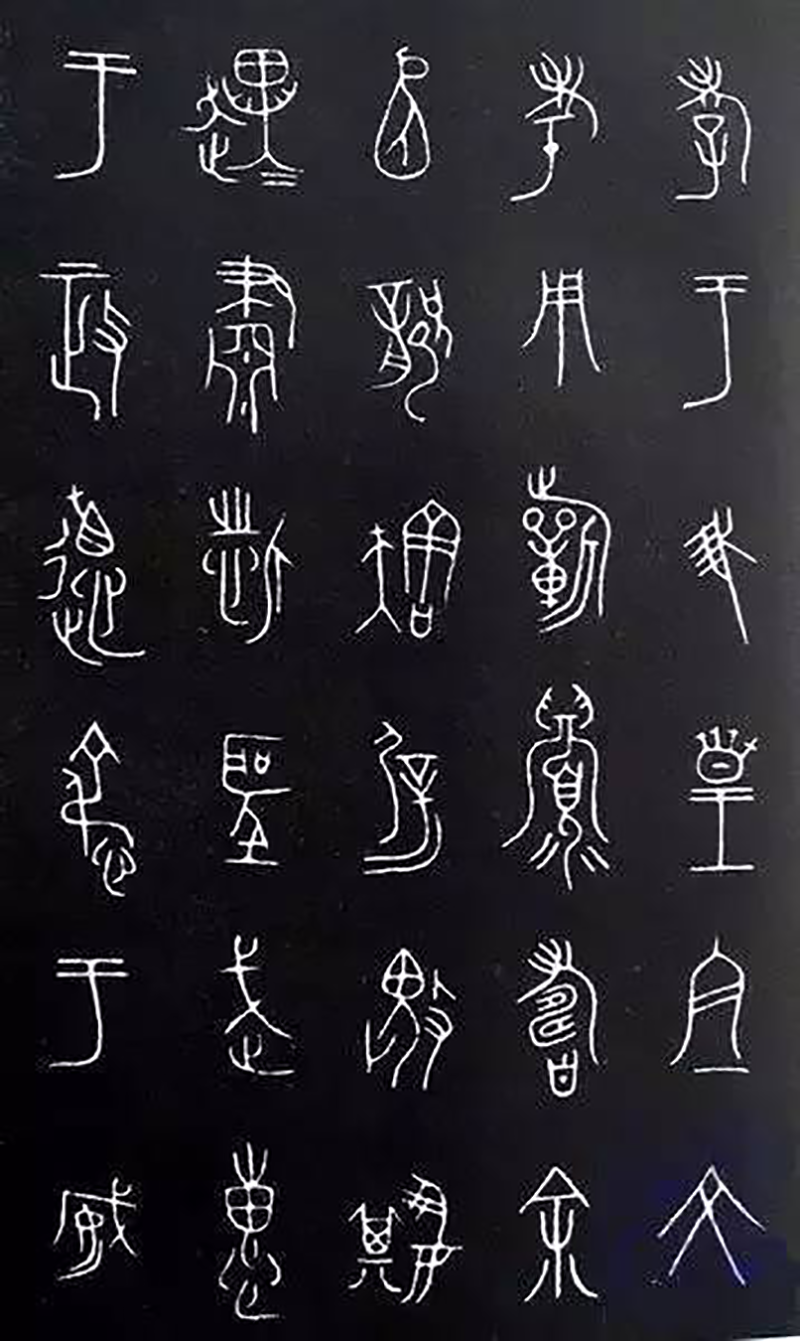 孝于我皇且文
考用祈眉壽余
圅龏㝬屖畏忌
趩=肅哲聖武惠
于政德淑于威